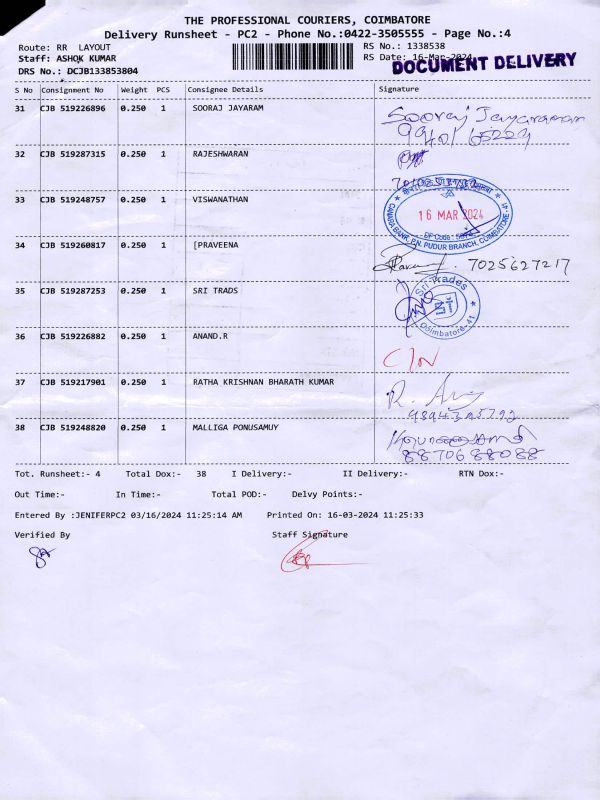 THE PROFESSIONAL COURIERS, COIMBATORE
Delivery Runsheet - PC2 - Phone No.:0422-3505555 - Page No.:4
Route: RR LAYOUT
RS No.: 1338538
Staff: ASHOK KUMAR
RS Date: 16-Mar-2024
DOCUMENT DELIVERY
DRS No.: DCJB133853804
S No Consignment No Weight PCS Consignee Details Signature
31 CJB 519226896 0.250 1 SOORAJ JAYARAM Sooraj Jayaraman
32 CJB 519287315 0.250 1 RAJESHWARAN
33 CJB 519248757 0.250 1 VISWANATHAN
16 MAR 2024
CANARA BANK, P.N. PUDUR BRANCH, COIMBATORE-41
34 CJB 519260817 0.250 1 [PRAVEENA 7025627217
35 CJB 519287253 0.250 1 SRI TRADS
Sri Trades
Coimbatore-41
36 CJB 519226882 0.250 1 ANAND.R C/N
37 CJB 519217901 0.250 1 RATHA KRISHNAN BHARATH KUMAR
38 CJB 519248820 0.250 1 MALLIGA PONUSAMUY
8870688088
Tot. Runsheet:- 4 Total Dox:- 38 I Delivery:- II Delivery:- RTN Dox:-
Out Time:- In Time:- Total POD:- Delvy Points:-
Entered By :JENIFERPC2 03/16/2024 11:25:14 AM Printed On: 16-03-2024 11:25:33
Verified By Staff Signature